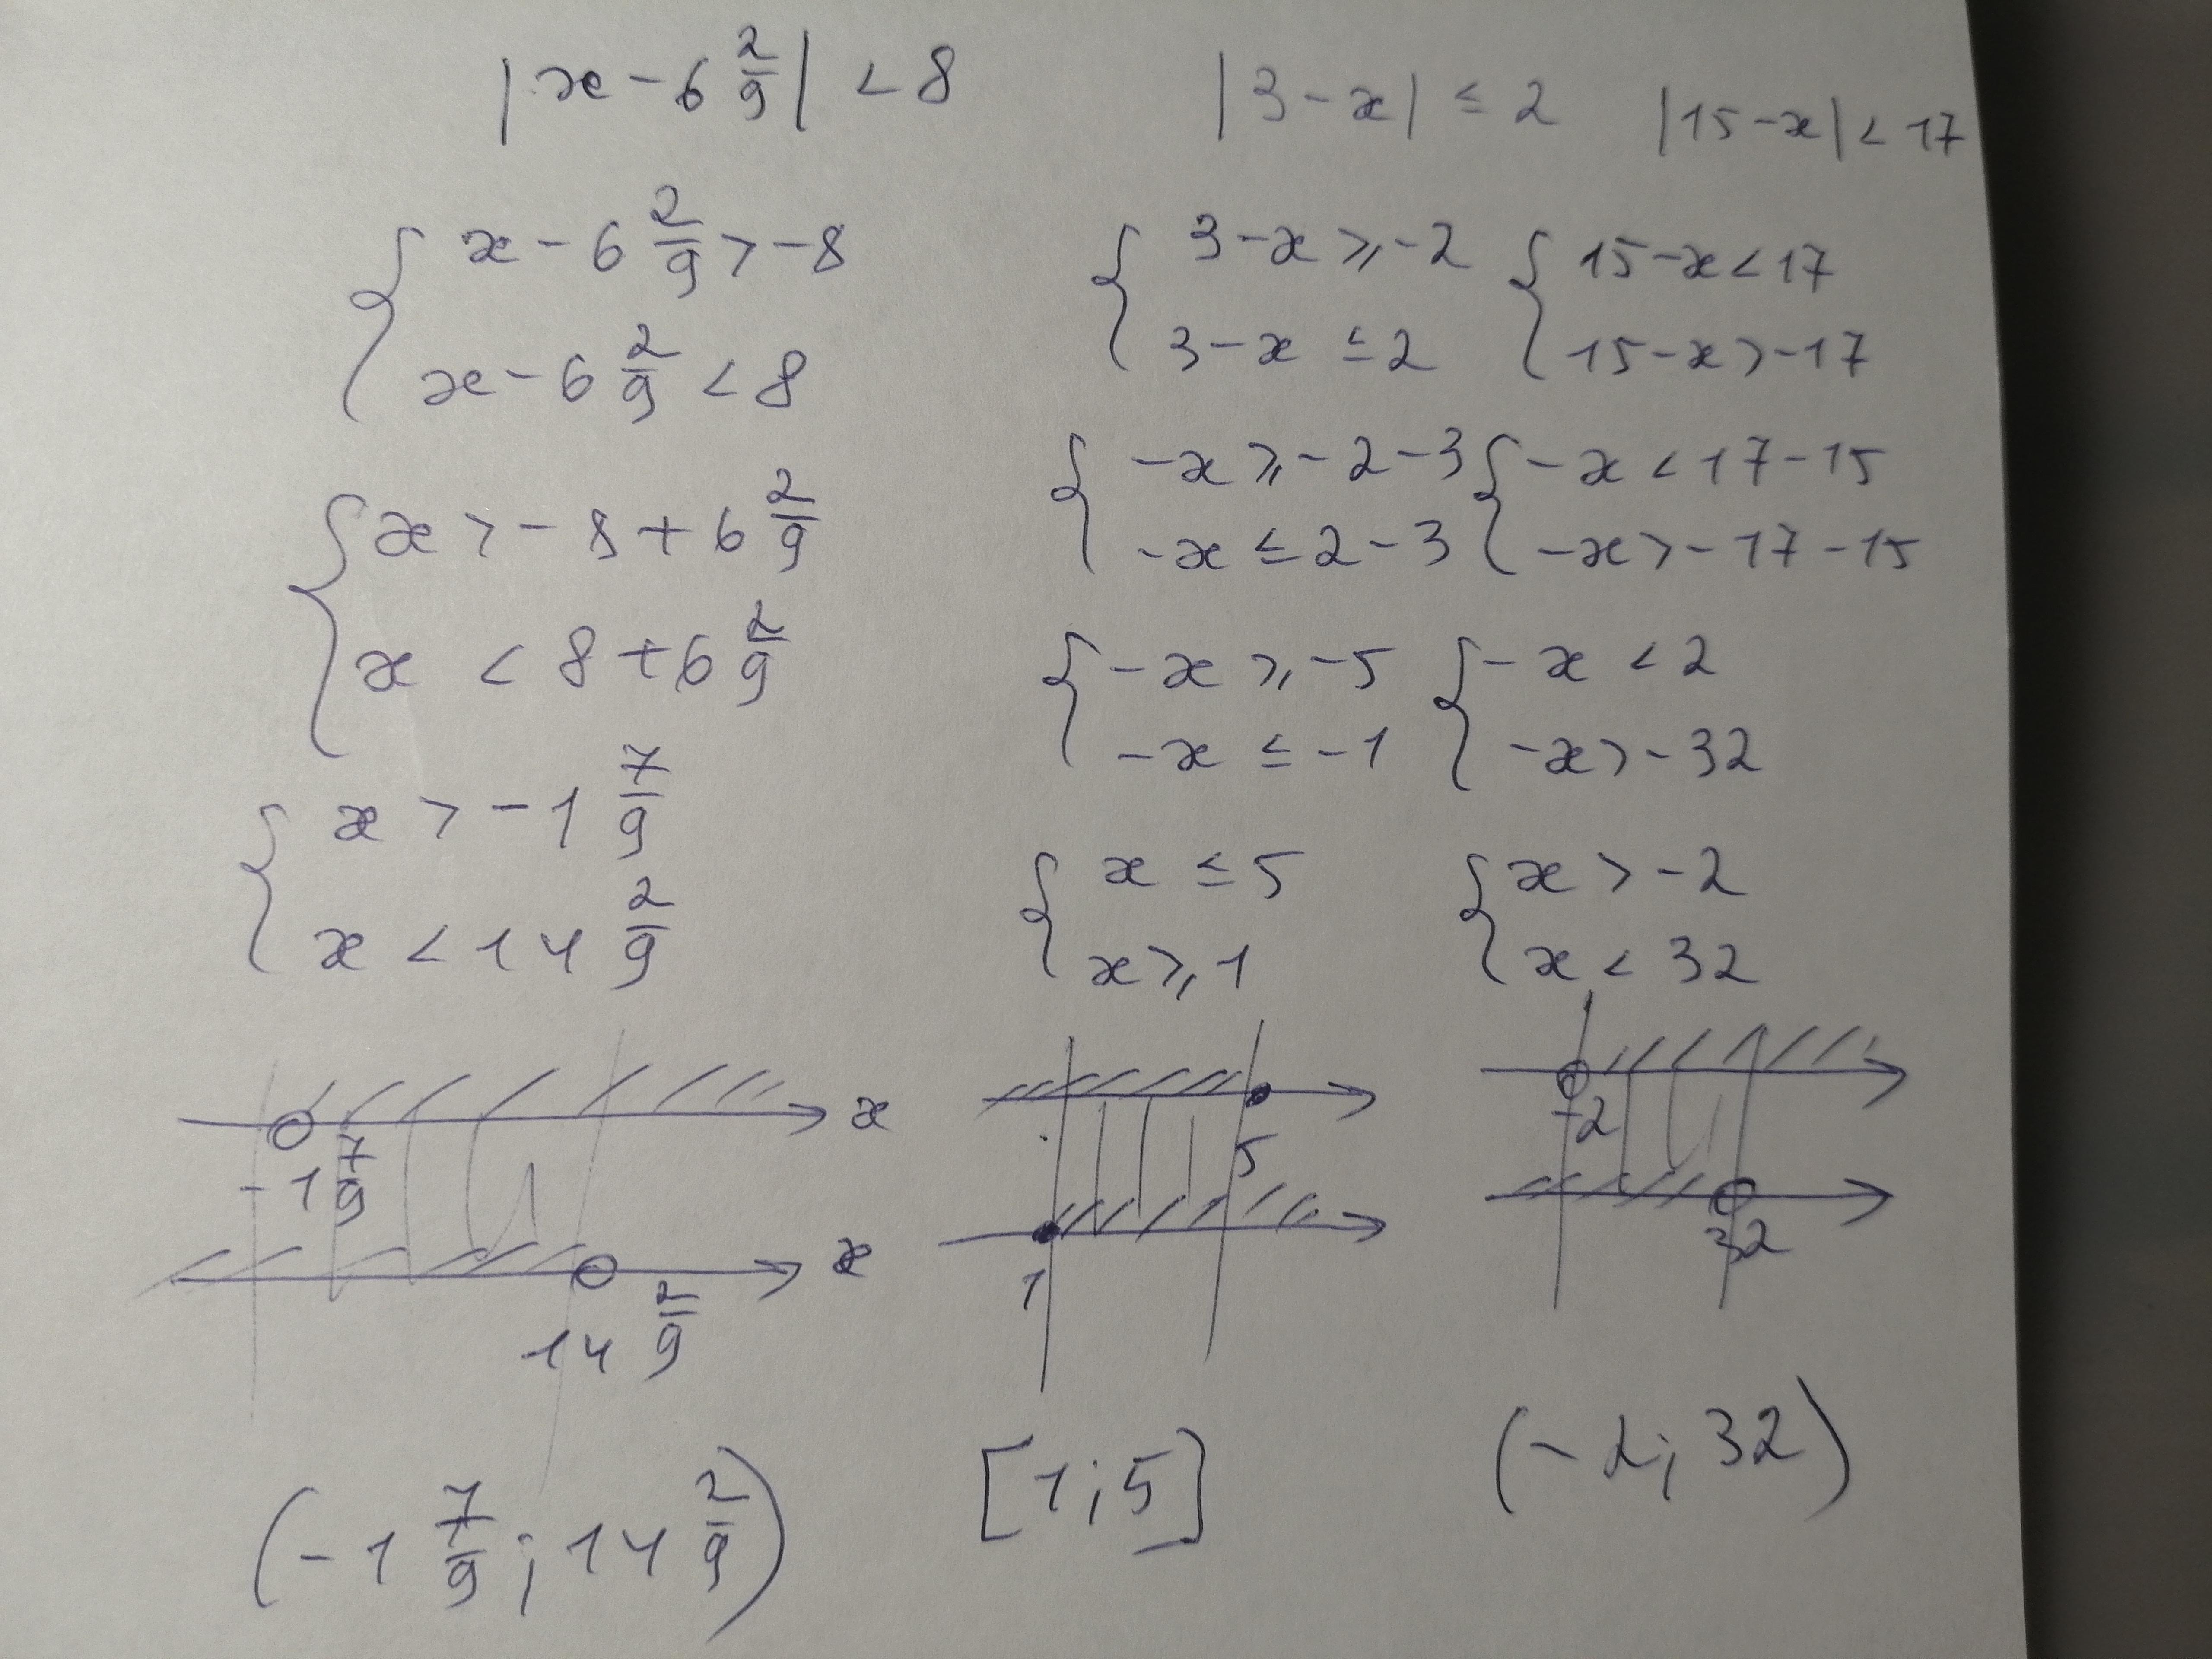 |x - 6 2/9| < 8
{ x - 6 2/9 > -8
x - 6 2/9 < 8
{ x > -8 + 6 2/9
x < 8 + 6 2/9
{ x > -1 7/9
x < 14 2/9
x
-1 7/9
x
14 2/9
(-1 7/9 ; 14 2/9)
|3 - x| ≤ 2
{ 3 - x ≥ -2
3 - x ≤ 2
{ -x ≥ -2 - 3
-x ≤ 2 - 3
{ -x ≥ -5
-x ≤ -1
{ x ≤ 5
x ≥ 1
5
1
[1; 5]
|15 - x| < 17
{ 15 - x < 17
15 - x > -17
{ -x < 17 - 15
-x > -17 - 15
{ -x < 2
-x > -32
{ x > -2
x < 32
-2
32
(-2; 32)